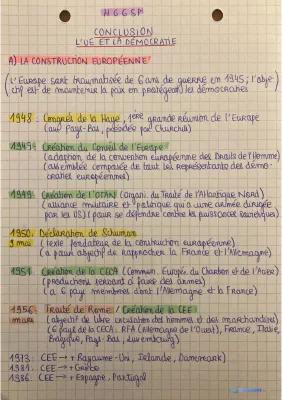 HGGSP
CONCLUSION
L'UE ET LA DÉMOCRATIE
A) LA CONSTRUCTION EUROPÉENNE
(L'Europe sort traumatisée de 6 ans de guerre en 1945 ; l'obje
ctif est de maintenir la paix en protégeant les démocraties
1948 : Congrès de la Haye, 1ère grande réunion de l'Europe
(aux Pays-Bas, présidée par Churchill)
1949 : Création du Conseil de l'Europe
(adoption de la convention européenne des Droits de l'Homme)
(assemblée composée de tout les représentants des démo-
craties européennes)
1949 : Création de l'OTAN (Organi. du Traité de l'Atlantique Nord)
(alliance militaire et politique qui a une armée dirigée
par les US) (pour se défendre contre la puissance soviétique)
1950 : Déclaration de Schuman
9 mai (texte fondateur de la construction européenne)
(a pour objectif de rapprocher la France et l'Allemagne)
1951 : Création de la CECA (Commun. Europé. du Charbon et de l'Acier)
(productions servant à faire des armes)
(a 6 pays membres dont l'Allemagne et la France)
1956 : Traité de Rome / Création de la CEE
mars (objectif de libre circulation des hommes et des marchandises)
(6 pays de la CECA : RFA (Allemagne de l'Ouest), France, Italie,
Belgique, Pays-Bas, Luxembourg)
1973 : CEE → + Royaume-Uni, Irlande, Danemark
1981 : CEE → + Grèce
1986 : CEE → + Espagne, Portugal